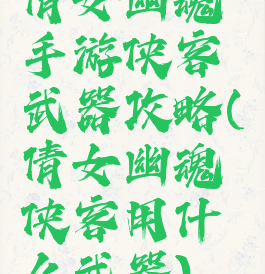 倩女幽魂
手游侠客
武器攻略(
倩女幽魂
侠客用什
么武器)